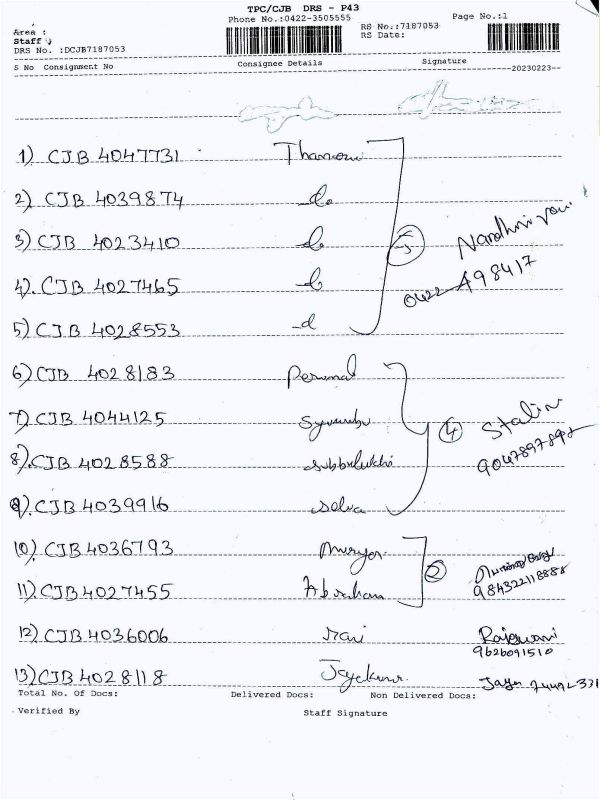 TPC/CJB DRS - P43
Phone No.:0422-3505555 Page No.:1
Area : RS No.:7187053
Staff : RS Date:
DRS No. :DCJB7187053
S No Consignment No Consignee Details Signature
20230223
1) CJB 4047731
2) CJB 4039874 do
3) CJB 4023410 do 5
4). CJB 4027465 do 0422 498417
5) CJB 4028553 do
6) CJB 4028183 Perumal
7) CJB 4044125 4 Stalin
8). CJB 4028588 Subbulakshi
9). CJB 4039916 Selva
10) CJB 4036793 2
11) CJB 4027455 Abraham 984322118888
12) CJB 4036006 rani Rajamani
9626091510
13) CJB 4028118 Jeyakumar
Total No. Of Docs: Delivered Docs: Non Delivered Docs:
Verified By Staff Signature